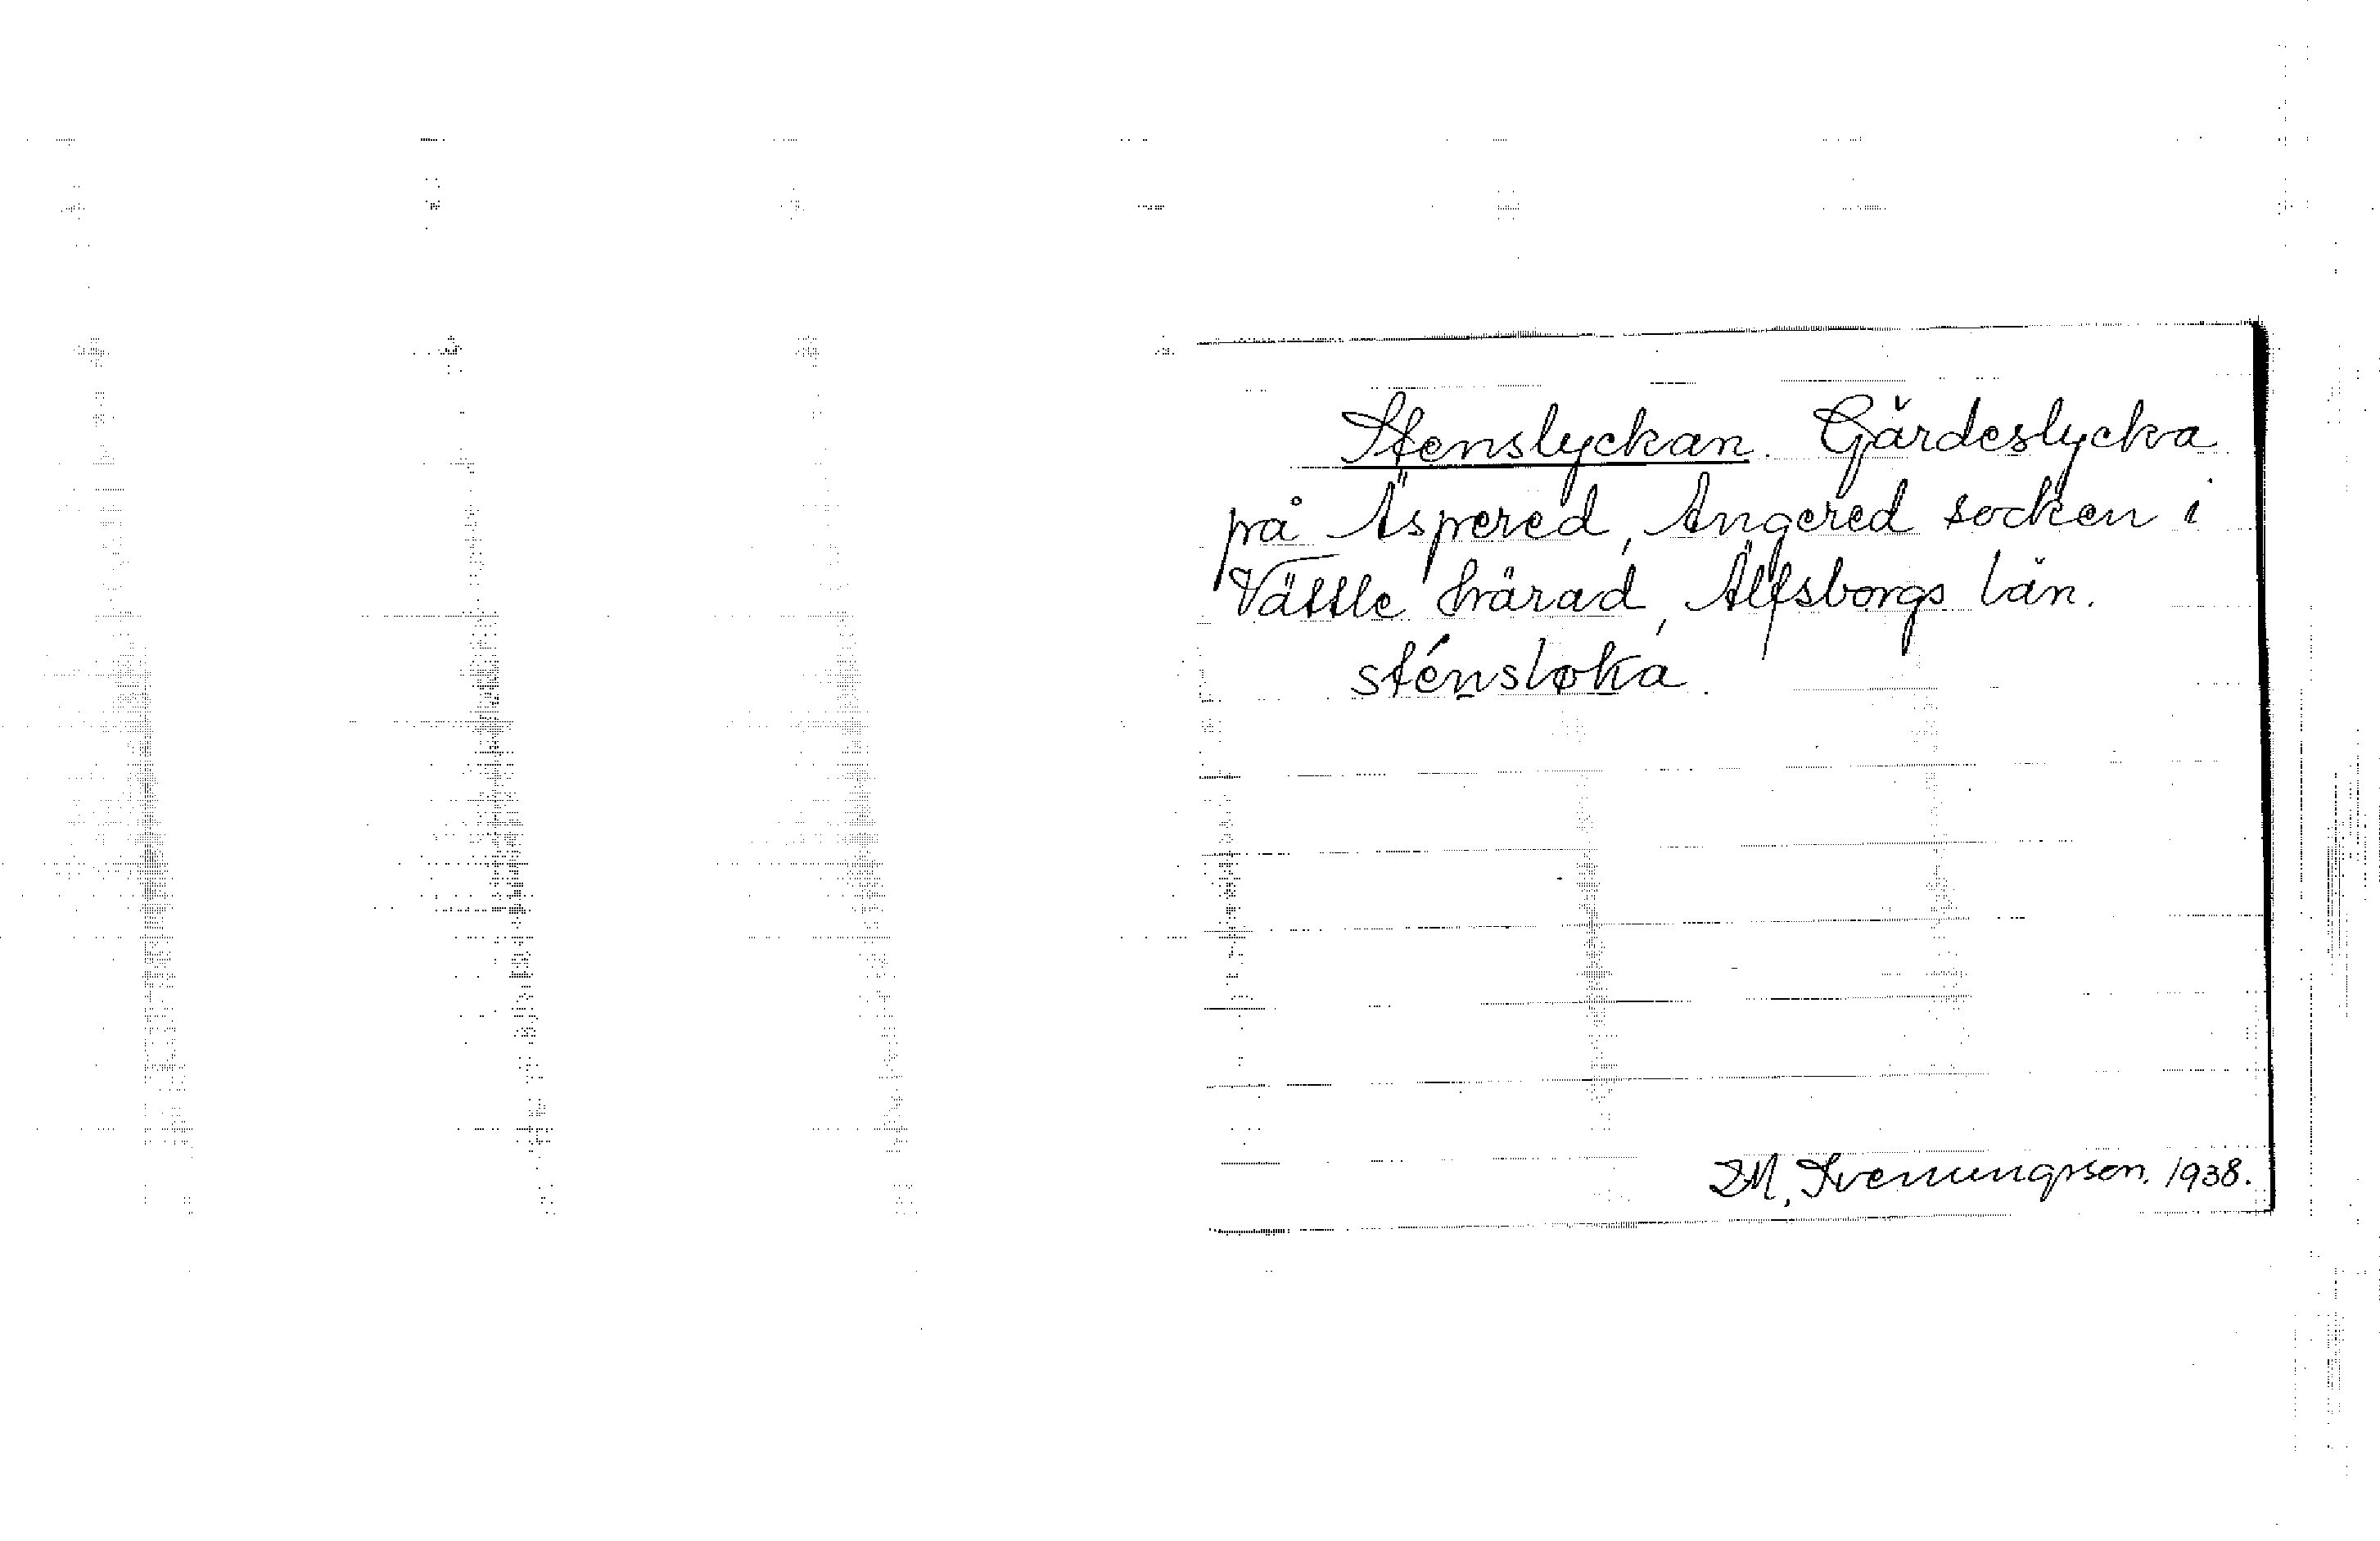 Stenslyckan. Gärdeslycka
på Äspered, Angered socken i
Vättle härad, Älfsborgs län.
sténsløka.
IM, Svenungsson. 1938.